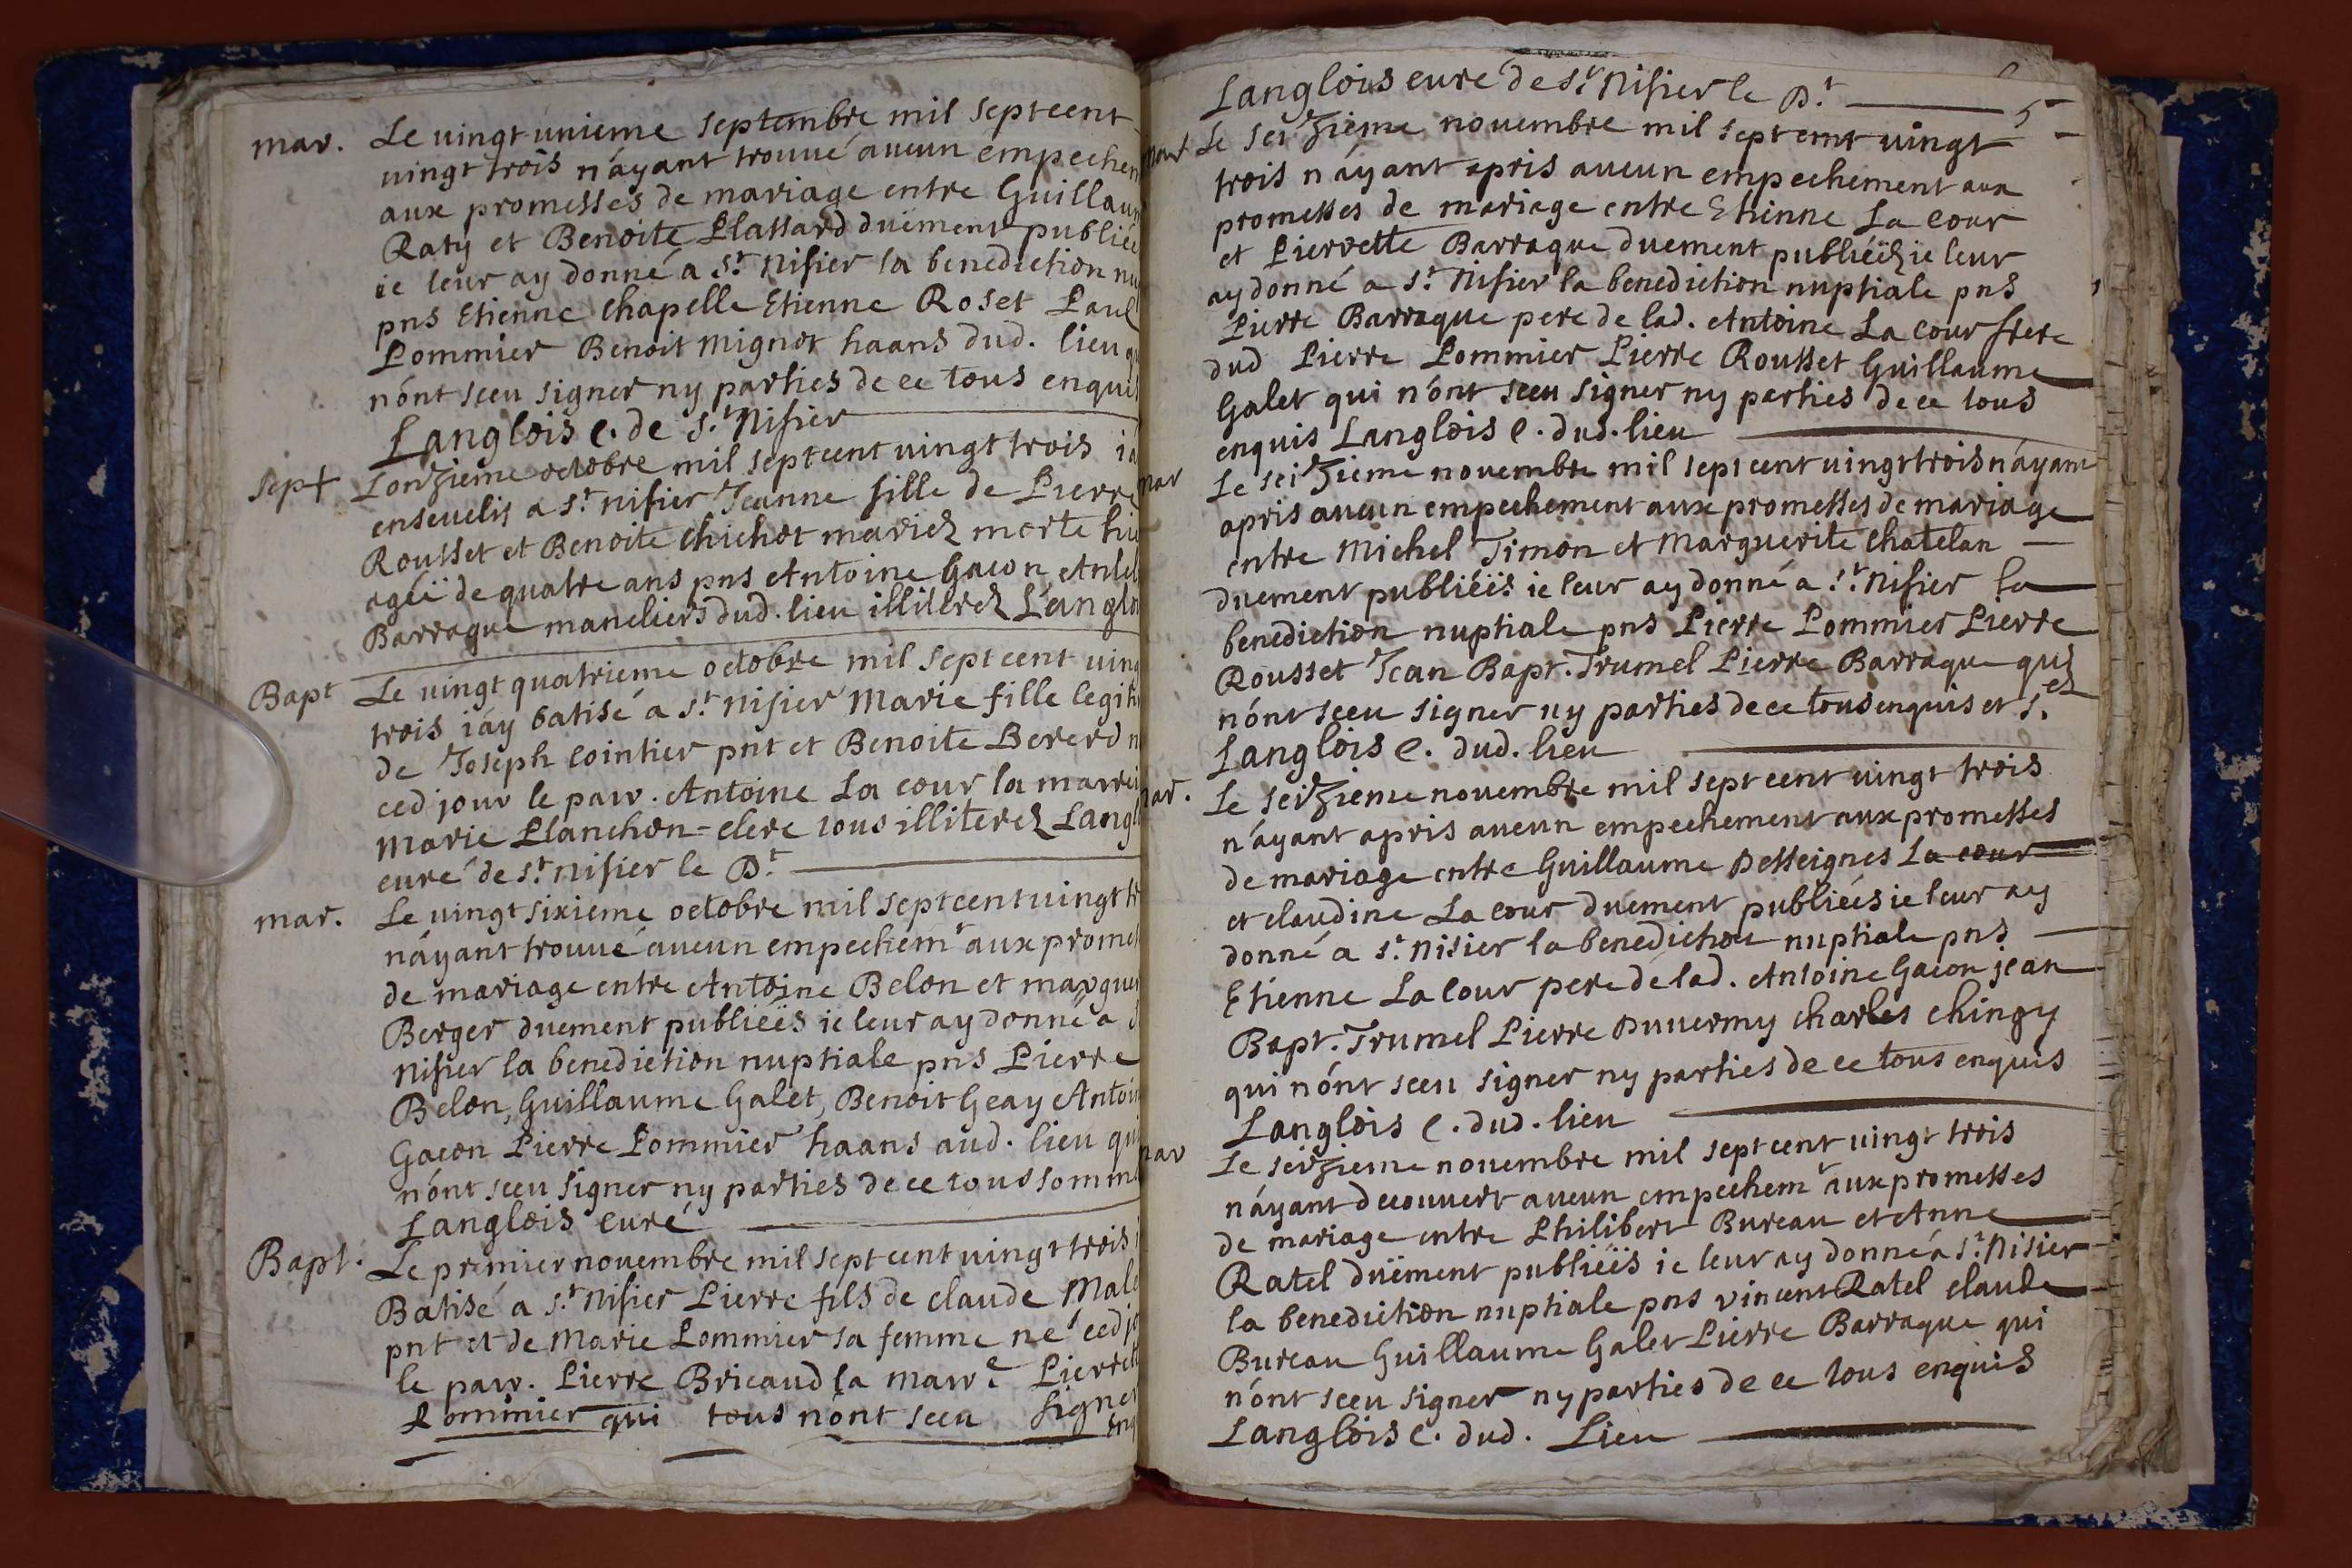 mar. Le vingt unieme septembre mil sept cent
vingt trois n'ayant trouvé aucun empechem
aux promesses de mariage entre Guillaum
Raty et Benoite Plassard duëment publiée
ie leur ay donné a St. Nisier la benediction nu
pns Etienne Chapelle Etienne Roset Paul
Pommier Benoit Mignot haans dud. lieu qu
n'ont sceu signer ny parties de ce tous enquis
Langlois c. de St. Nisier
sep+ L'onzieme octobre mil sept cent vingt trois ia
ensevelis a St. Nisier Jeanne fille de Pierre
Rousset et Benoite Chichot mariez morte hie
ageé de quatre ans pns Antoine Gacon
Barraque dud. lieu illiterez Langlo
Bapt Le vingt quatrieme octobre mil sept cent ving
trois i'ay batisé a St. Nisier Marie fille legiti
de Joseph Cointier pnt et Benoite Bererd n
ced jour le parr. Antoine La cour la marrei
Marie Planchon-clerc tous illiterez Langl
curé de St. Nisier le Dt.
mar. Le vingt sixieme octobre mil sept cent vingt tr
n'ayant trouvé aucun empechemt aux promes
de mariage entre Antoine Belon et marguer
Berger duement publieés ie leur ay donné a S
Nisier la benediction nuptiale pns Pierre
Belon, Guillaume Galet, Benoit Geay Antoin
Gacon Pierre Pommier haans aud. lieu qui
n'ont sceu signer ny parties de ce tous somme
Langlois curé
Bapt. Le premier novembre mil sept cent vingt trois i
Batisé a St. Nisier Pierre fils de claude Male
pnt et de Marie Pommier sa femme né ced jo
le parr. Pierre Bricaud la marr.e Pierrett
Pommier qui tous n'ont sceu signer
enq
Langlois curé de St. Nisier le Dt.
5
mar Le seizieme novembre mil sept cent vingt
trois n'ayant apris aucun empechement aux
promesses de mariage entre Etienne La cour
et Pierrette Barraque duement publiéëz ie leur
ay donné a St. Nisier la benediction nuptiale pns
Pierre Barraque pere de lad. Antoine La cour frere
dud Pierre Pommier Pierre Rousset Guillaume
Galet qui n'ont sceu signer ny parties de ce tous
enquis Langlois c. dud. lieu
mar Le seizieme novembre mil sept cent vingt trois n'ayant
apris aucun empechement aux promesses de mariage
entre Michel Timon et Marguerite Chatelan
duement publiéës ie leur ay donné a St. Nisier la
benediction nuptiale pns Pierre Pommier Pierre
Rousset Jean Bapt. Trumel Pierre Barraque qui
n'ont sceu signer ny parties de ce tous enquis et s.ez
Langlois c. dud. lieu
mar. Le seizieme novembre mil sept cent vingt trois
n'ayant apris aucun empechement aux promesses
de mariage entre Guillaume Desseignes La cour
et claudine La cour duement publieés ie leur ay
donné a St. Nisier la benediction nuptiale pns
Etienne La Cour pere de lad. Antoine Gacon jean
Bapt. Trumel Pierre Duvermy charles chingy
qui n'ont sceu signer ny parties de ce tous enquis
Langlois c. dud. lieu
mar Le seizieme novembre mil sept cent vingt trois
n'ayant decouvert aucun empechemt aux promesses
de mariage entre Philibert Bureau et Anne
Ratel duëment publiéës ie leur ay donné a St. Nisier
la benediction nuptiale pns vincent Ratel claude
Bureau Guillaume Galet Pierre Barraque qui
n'ont sceu signer ny parties de ce tous enquis
Langlois c. dud. Lieu